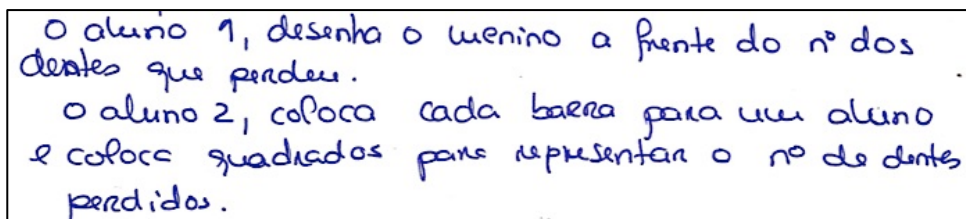 O aluno 1, desenha o menino a frente do nº dos
dentes que perdeu.
O aluno 2, coloca cada barra para um aluno
e coloca quadrados para representar o nº de dentes
perdidos.